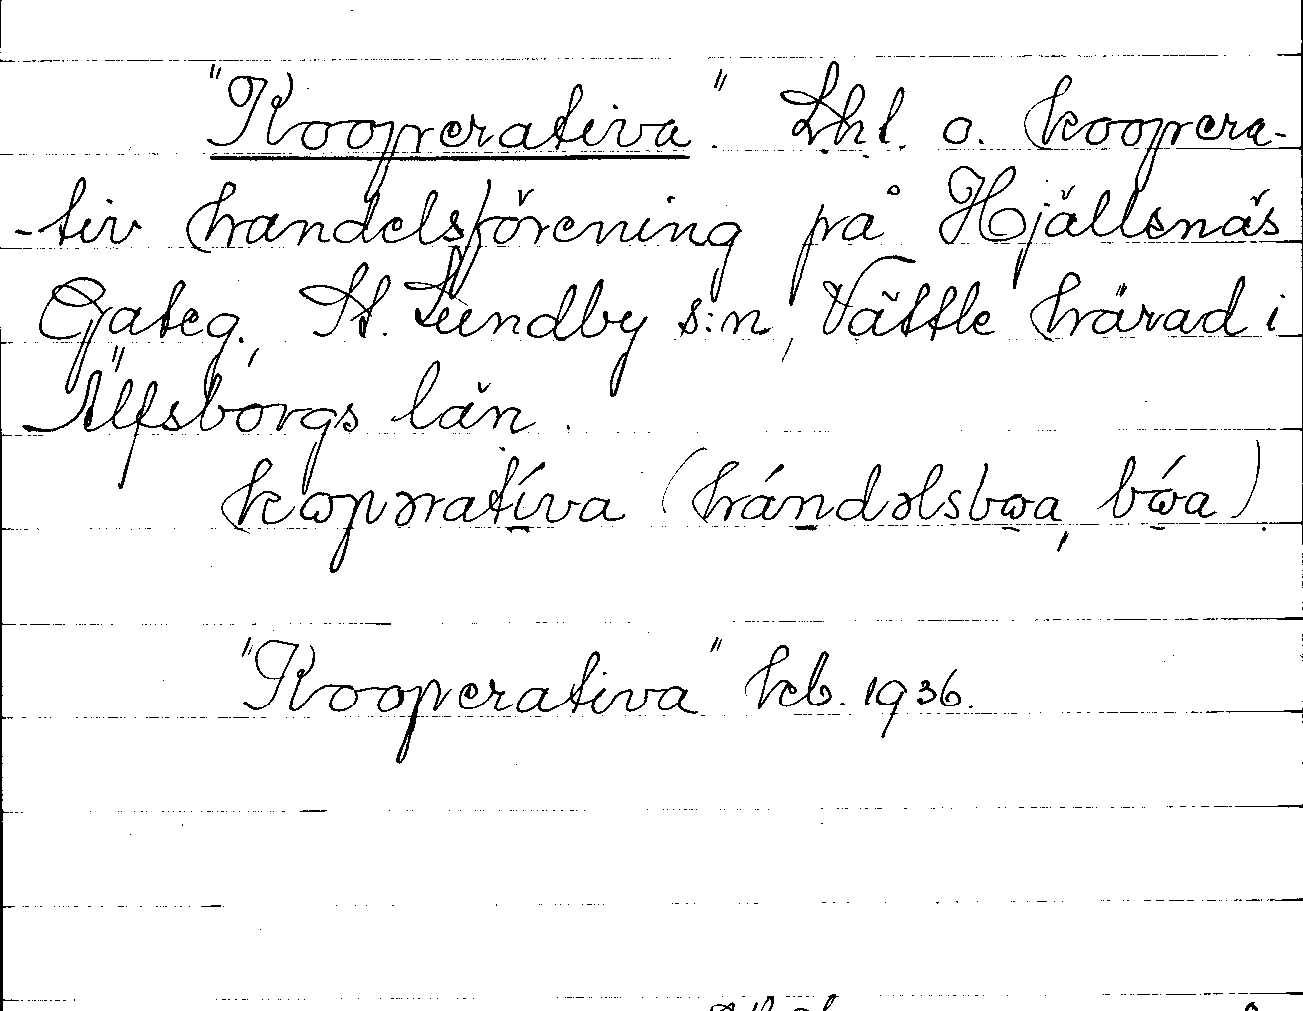 "Kooperativa". Lht. o. koopera-
-tiv handelsförening på Hjällsnäs
Gateg., St. Lundby s:n, Vättle härad i
Älfsborgs län.
kωpəratíva (hándəlsbωa, bώa).
"Kooperativa" kb. 1936.